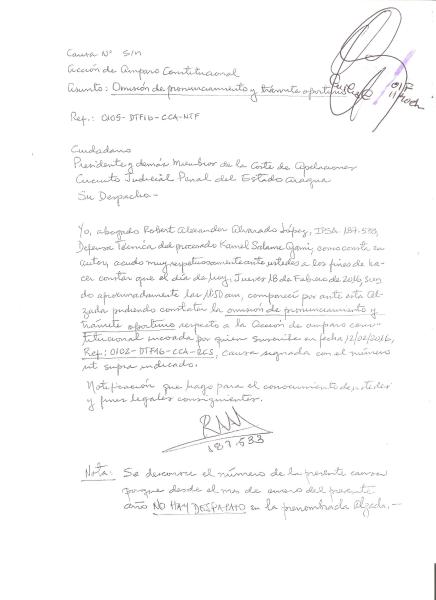 Causa Nº S/N
Acción de Amparo Constitucional
Asunto: Omisión de pronunciamiento y trámite oportuno
Ref.: 0105-DTF16-CCA-NTF
Ciudadano
Presidente y demás Miembros de la Corte de Apelaciones
Circuito Judicial Penal del Estado Aragua
Su Despacho.-
Yo, abogado Robert Alexander Alvarado López, IPSA 187.533,
Defensa Técnica del procesado Kamel Salame Ajami, como consta en
autos, acudo muy respetuosamente ante ustedes a los fines de ha-
cer constar que el día de hoy, Jueves 18 de Febrero de 2016, sien-
do aproximadamente las 11:50 am, comparecí por ante esta Al-
zada pudiendo constatar la omisión de pronunciamiento y
trámite oportuno respecto a la Acción de amparo cons-
titucional incoada por quien suscribe en fecha 12/02/2016,
Ref.: 0102-DTF16-CCA-RCS, causa signada con el número
ut supra indicado.
Notificación que hago para el conocimiento de ustedes
y fines legales consiguientes.
187.533
Nota: Se desconoce el número de la presente causa
porque desde el mes de enero del presente
año NO HAY DESPACHO en la prenombrada Alzada.-